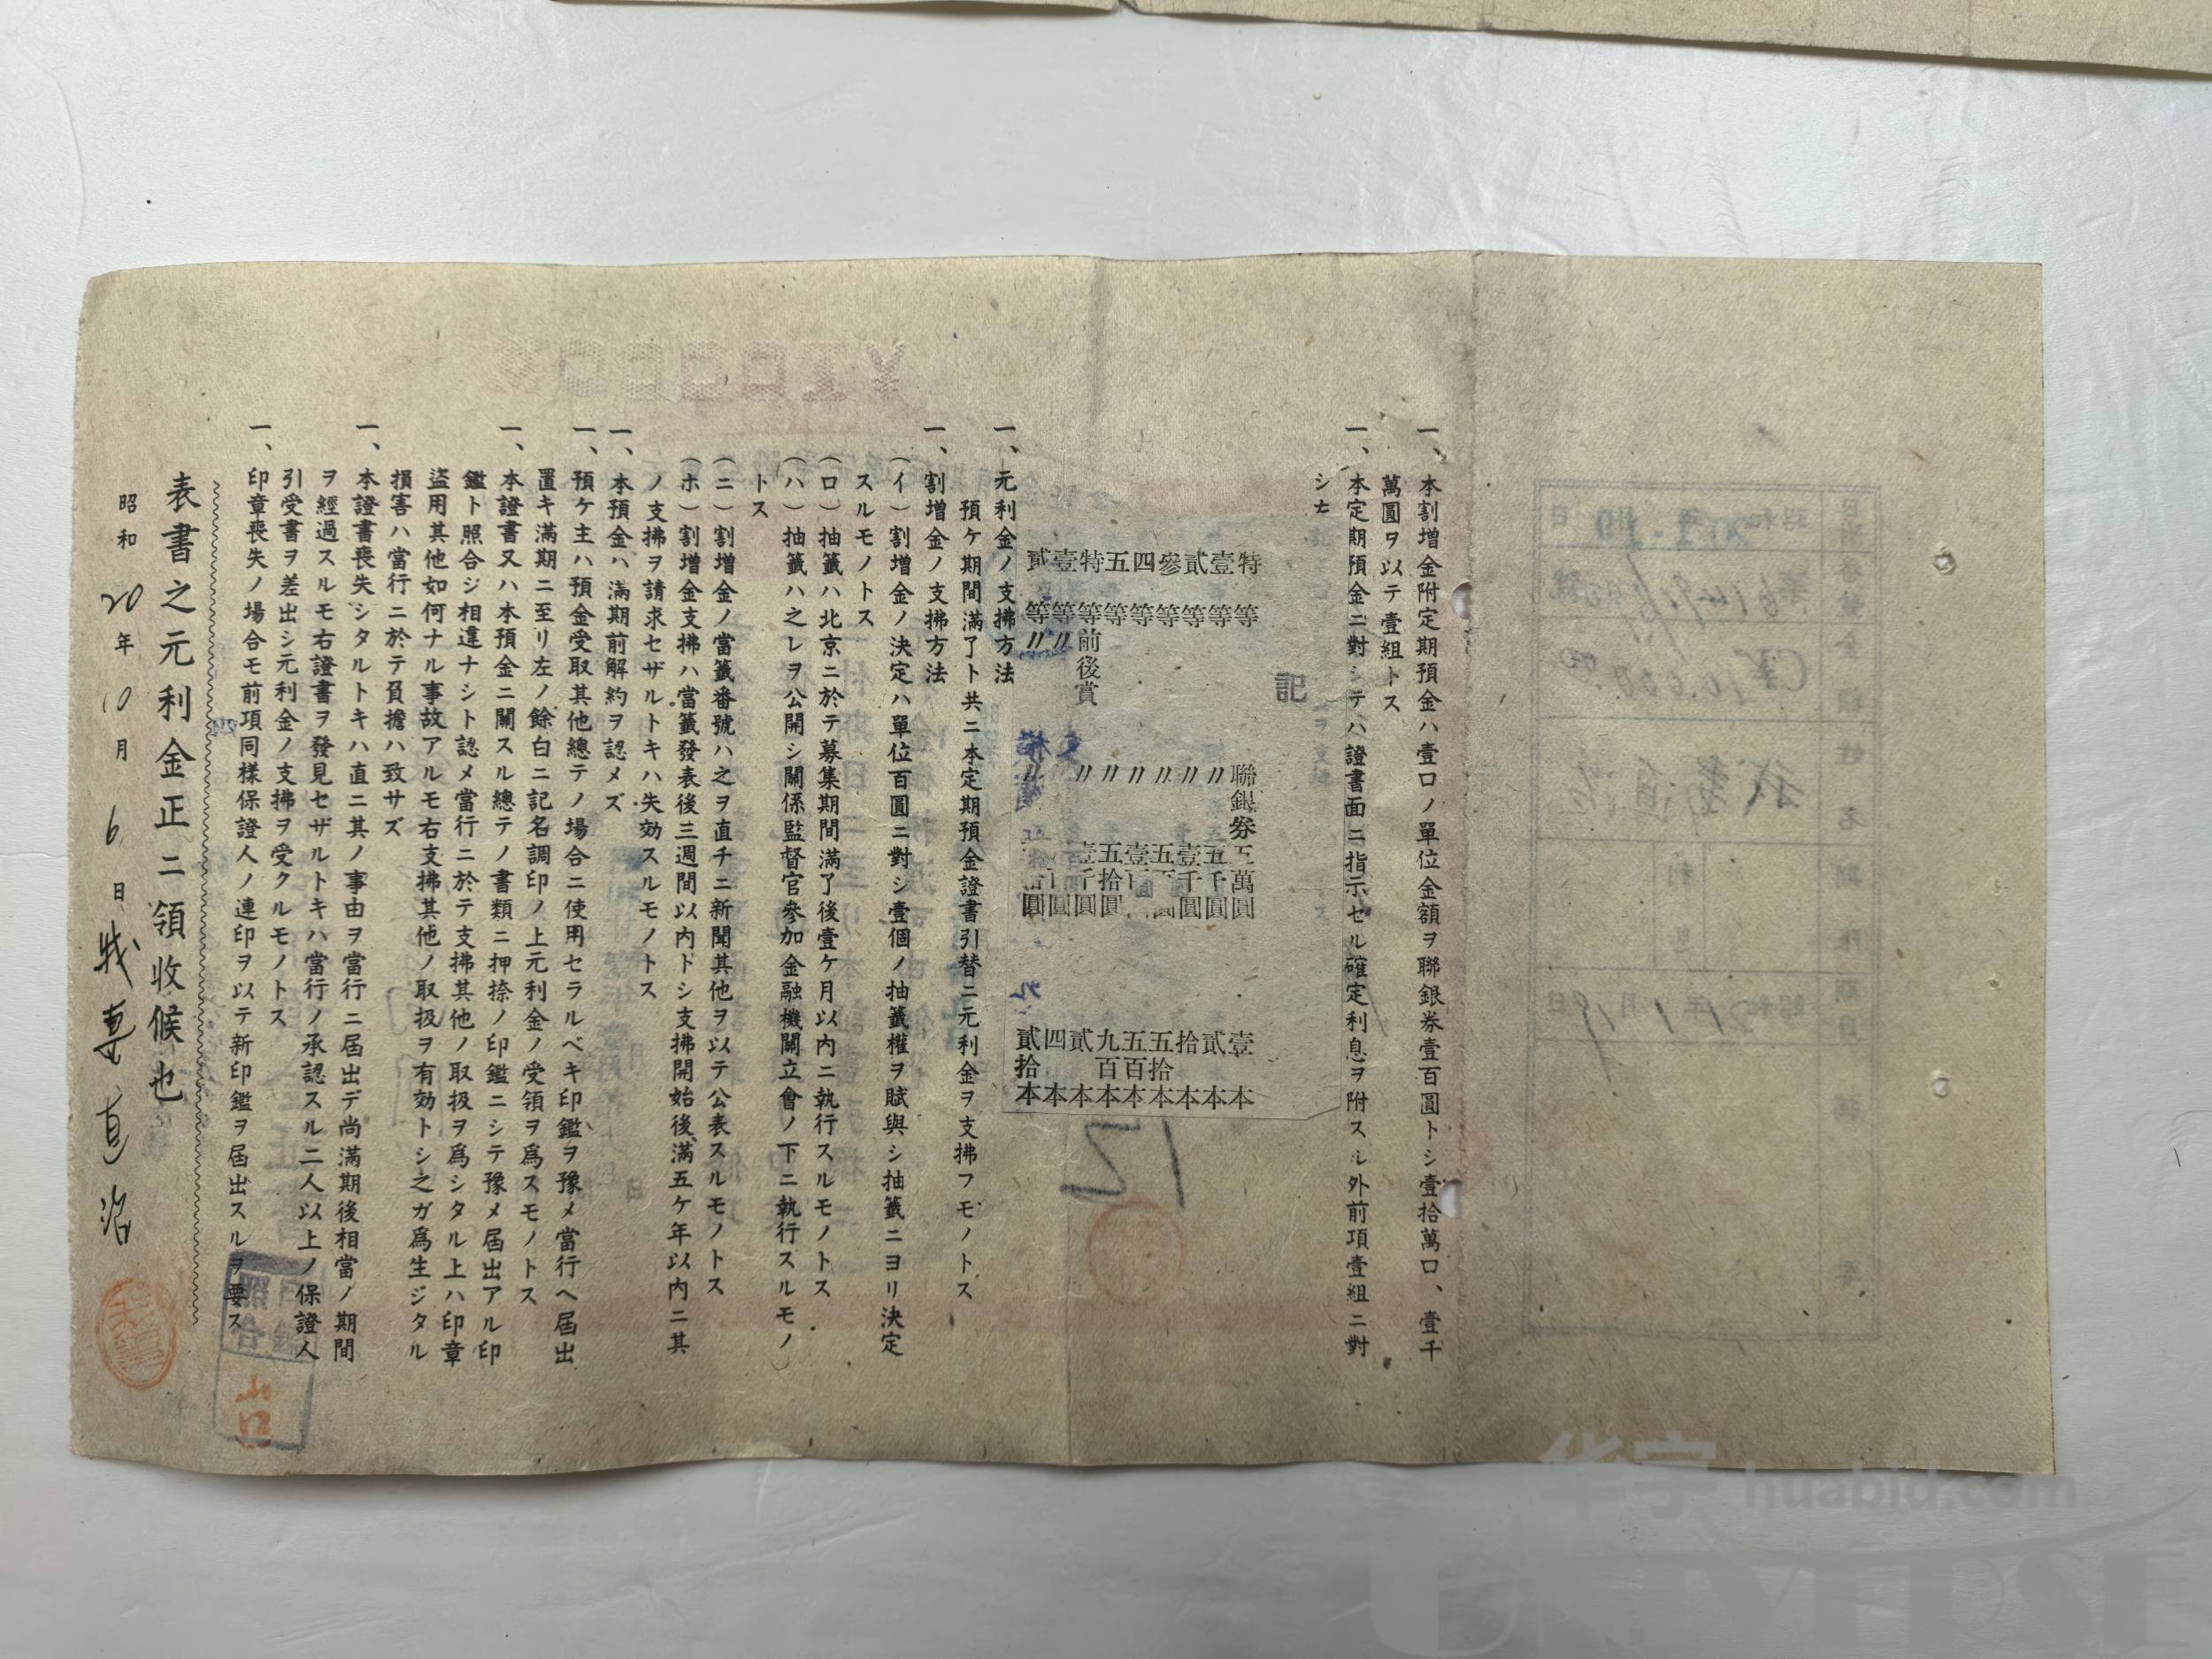 一、本割增金附定期預金ハ壹口ノ單位金額ヲ聯銀券壹百圓トシ壹拾萬口、壹千
萬圓ヲ以テ壹組トス
一、本定期預金ニ對シテハ證書面ニ指示セル確定利息ヲ附スル外前項壹組ニ對
シ左
記
特等 聯銀券五萬圓 壹本
壹等 〃 五千圓 貳本
貳等 〃 壹千圓 拾本
參等 〃 五百圓 五拾本
四等 〃 壹百圓 五百本
五等 〃 五拾圓 九百本
特等前後賞 〃 壹千圓 貳本
壹等〃 四本
貳等〃 〃 貳拾本
一、元利金ノ支拂方法
預ケ期間滿了ト共ニ本定期預金證書引替ニ元利金ヲ支拂フモノトス
一、割增金ノ支拂方法
(イ)割增金ノ決定ハ單位百圓ニ對シ壹個ノ抽籤權ヲ賦與シ抽籤ニヨリ決定
スルモノトス
(ロ)抽籤ハ北京ニ於テ募集期間滿了後壹ケ月以内ニ執行スルモノトス
(ハ)抽籤ハ之レヲ公開シ關係監督官參加金融機關立會ノ下ニ執行スルモノ
トス
(ニ)割增金ノ當籤番號ハ之ヲ直チニ新聞其他ヲ以テ公表スルモノトス
(ホ)割增金支拂ハ當籤發表後三週間以内トシ支拂開始後滿五ケ年以内ニ其
ノ支拂ヲ請求セザルトキハ失効スルモノトス
一、本預金ハ滿期前解約ヲ認メズ
一、預ケ主ハ預金受取其他總テノ場合ニ使用セラルベキ印鑑ヲ豫メ當行ヘ屆出
置キ滿期ニ至リ左ノ餘白ニ記名調印ノ上元利金ノ受領ヲ爲スモノトス
一、本證書又ハ本預金ニ關スル總テノ書類ニ押捺ノ印鑑ニシテ豫メ屆出アル印
鑑ト照合シ相違ナシト認メ當行ニ於テ支拂其他ノ取扱ヲ爲シタル上ハ印章
盜用其他如何ナル事故アルモ右支拂其他ノ取扱ヲ有効トシ之ガ爲生ジタル
損害ハ當行ニ於テ負擔ハ致サズ
一、本證書喪失シタルトキハ直ニ其ノ事由ヲ當行ニ屆出デ尚滿期後相當ノ期間
ヲ經過スルモ右證書ヲ發見セザルトキハ當行ノ承認スル二人以上ノ保證人
引受書ヲ差出シ元利金ノ支拂ヲ受クルモノトス
一、印章喪失ノ場合モ前項同樣保證人ノ連印ヲ以テ新印鑑ヲ屆出スルヲ要ス
表書之元利金正ニ領收候也
昭和20年10月6日
照合
山口
12
华宇 huabid.com